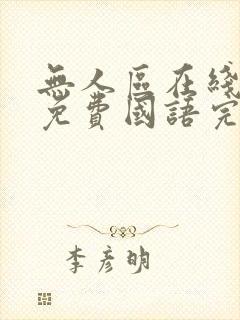 無人區在綫
免費國語完
李彥明